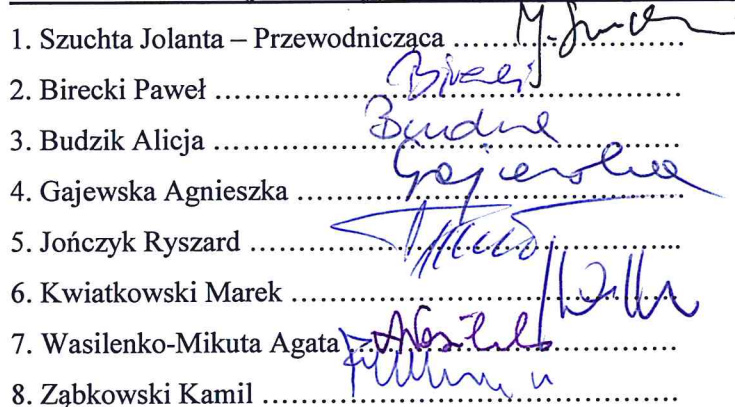 1. Szuchta Jolanta – Przewodnicząca ………………………
2. Birecki Paweł ………………………………………… Birecki
3. Budzik Alicja ………………………………………… Budzik
4. Gajewska Agnieszka ………………………………… Gajewska
5. Jończyk Ryszard ………………………………………
6. Kwiatkowski Marek ……………………………………
7. Wasilenko-Mikuta Agata ………………………………
8. Ząbkowski Kamil ………………………………………